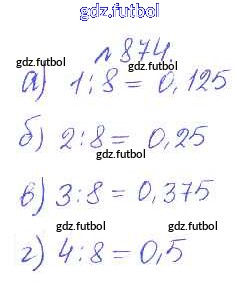 gdz.futbol
№874
gdz.futbol gdz.futbol
а) 1:8 = 0,125
gdz.futbol gdz.futbol
б) 2:8 = 0,25
gdz.futbol
в) 3:8 = 0,375
gdz.futbol gdz.futbol
г) 4:8 = 0,5
gdz.futbol